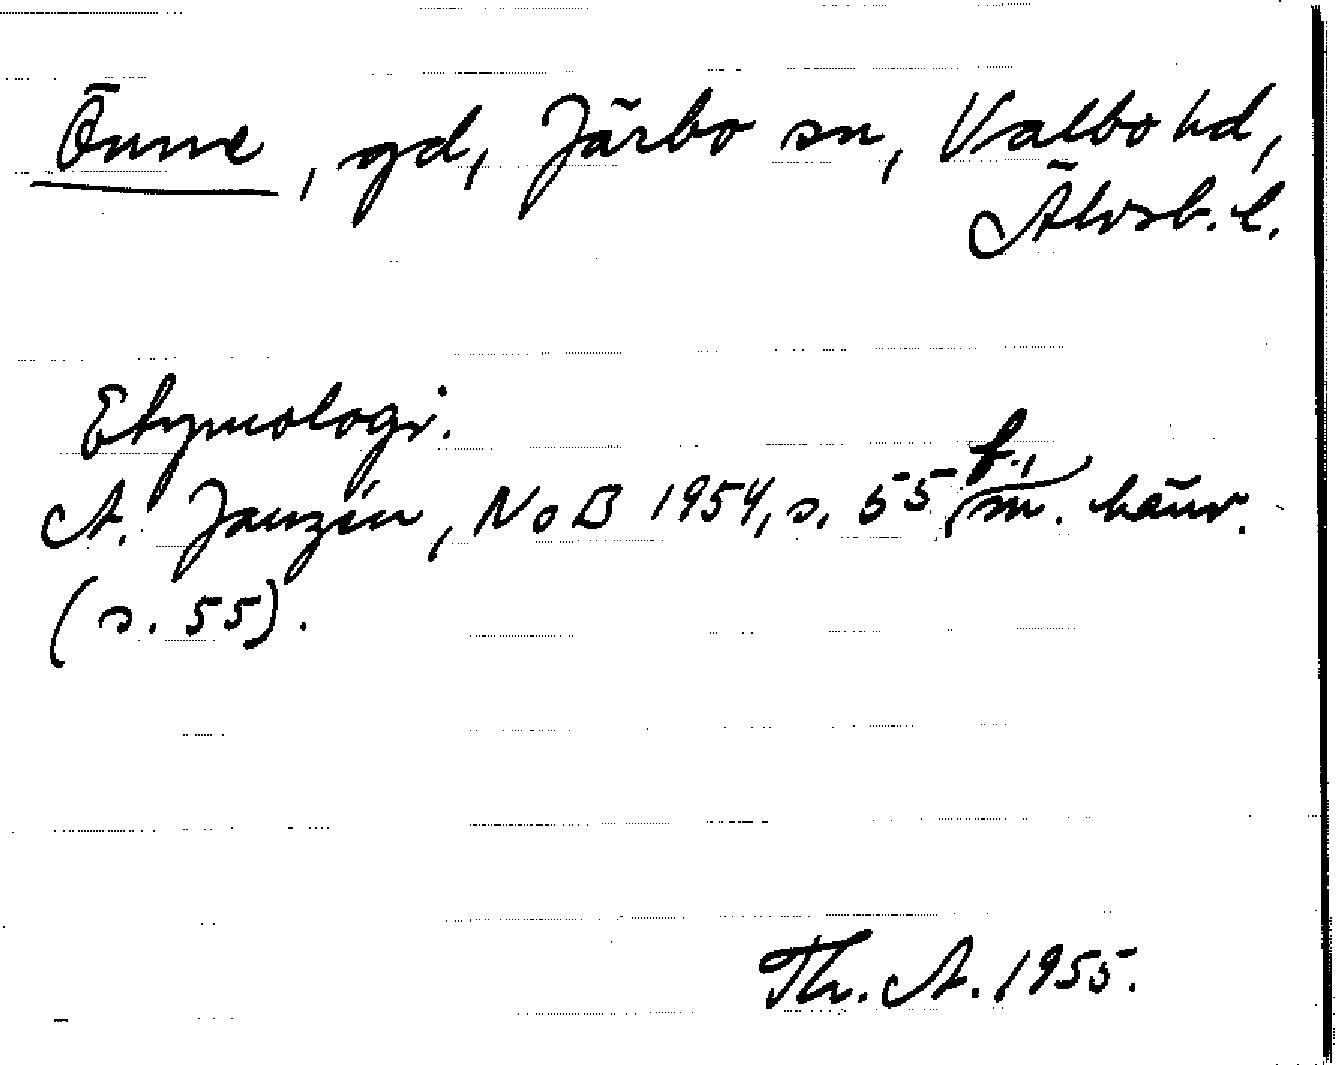 Önne, gd, Järbo sn, Valbo hd,
Älvsb. l.
Etymologi.
A. Janzén, NoB 1954, s. 55 f.,
m. hänv.
(s. 55).
Th. A. 1955.